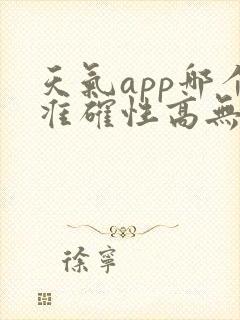 天氣app哪個
准確性高無
徐寧